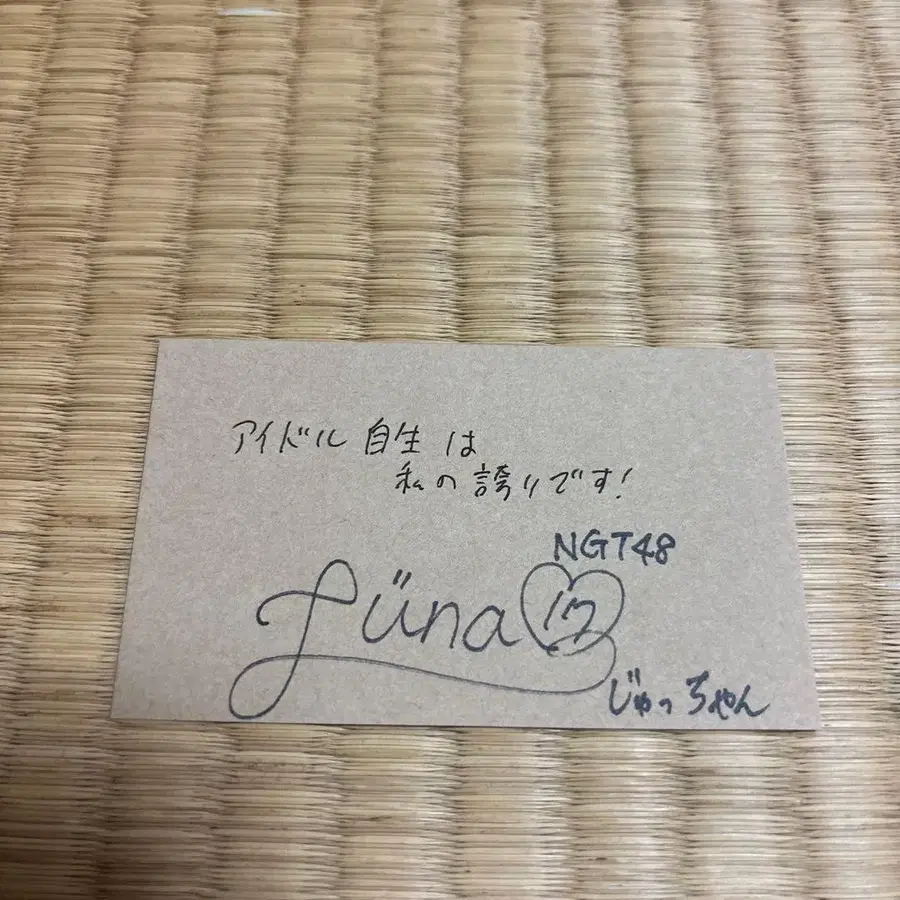 アイドル自生は
私の誇りです!
NGT48
Lüna 17
じゅっちゃん